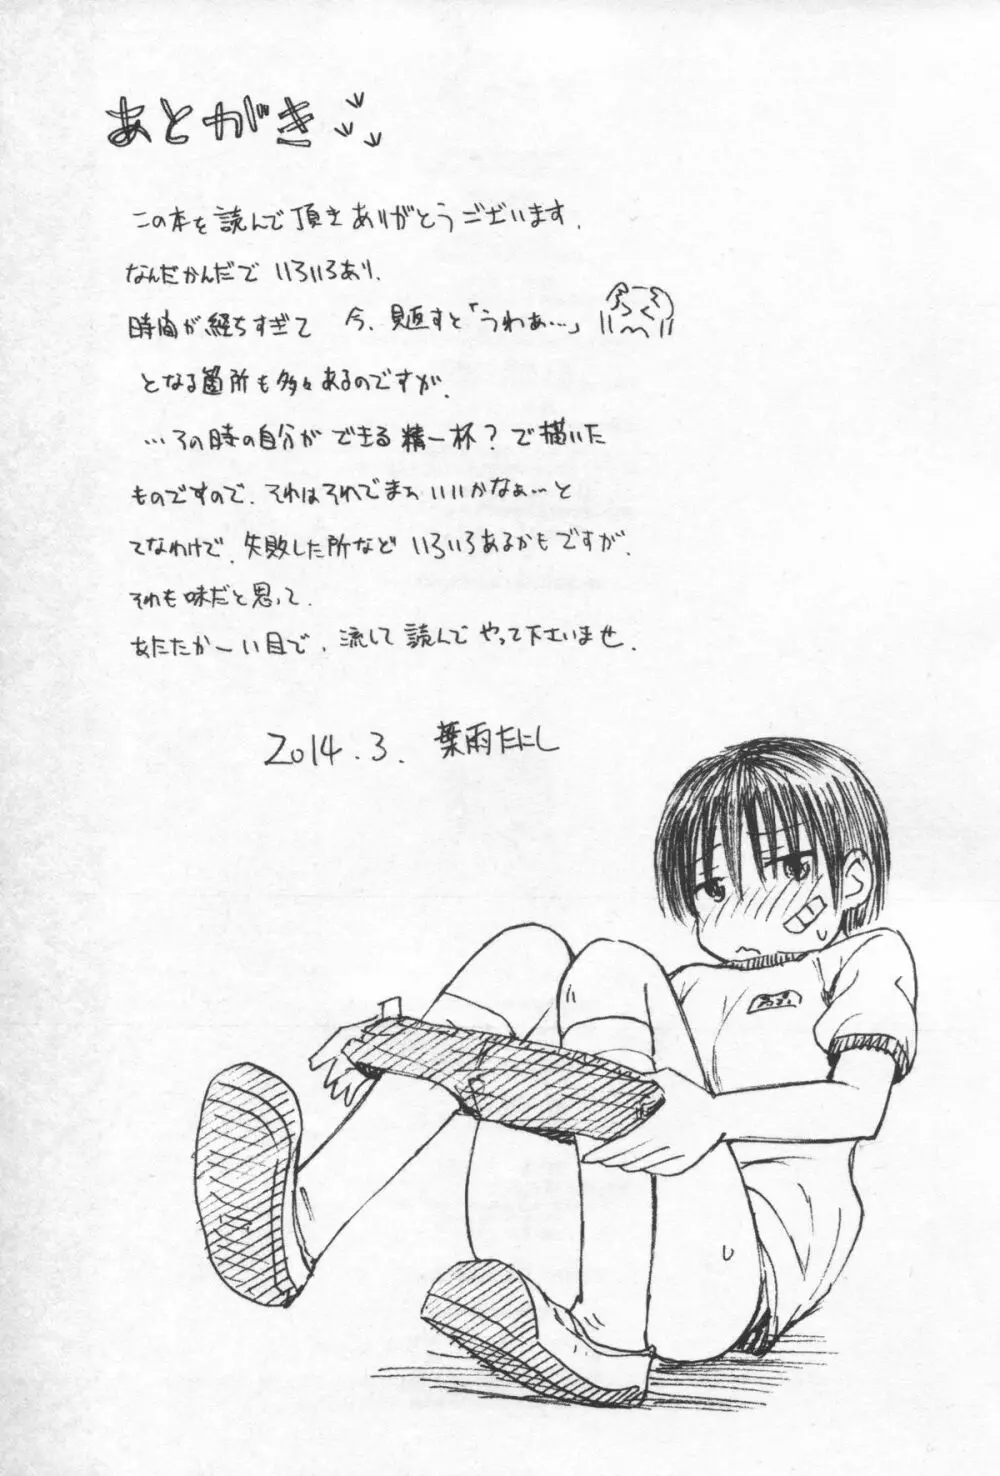 あとがき
この本を読んで頂きありがとうございます.
なんだかんだで いろいろあり.
時間が経ちすぎて 今、見返すと「うわぁ…」
となる箇所も多々あるのですが.
…その時の自分ができる精一杯?で描いた
ものですので、それはそれでまぁいいかなぁ…と
てなわけで、失敗した所などいろいろあるかもですが、
それも味だと思って.
あたたかーい目で、流して読んでやって下さいませ.
2014.3. 葉雨たにし